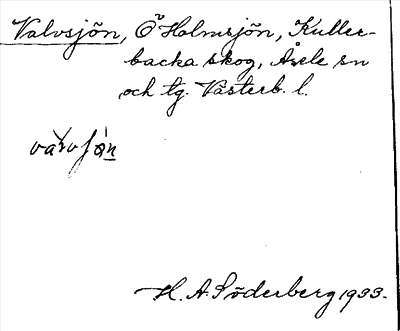 Valvsjön, Ö Holmsjön, Kuller-
backa skog, Åsele sn
och tg. Västerb. l.
H. A. Söderberg 1933.